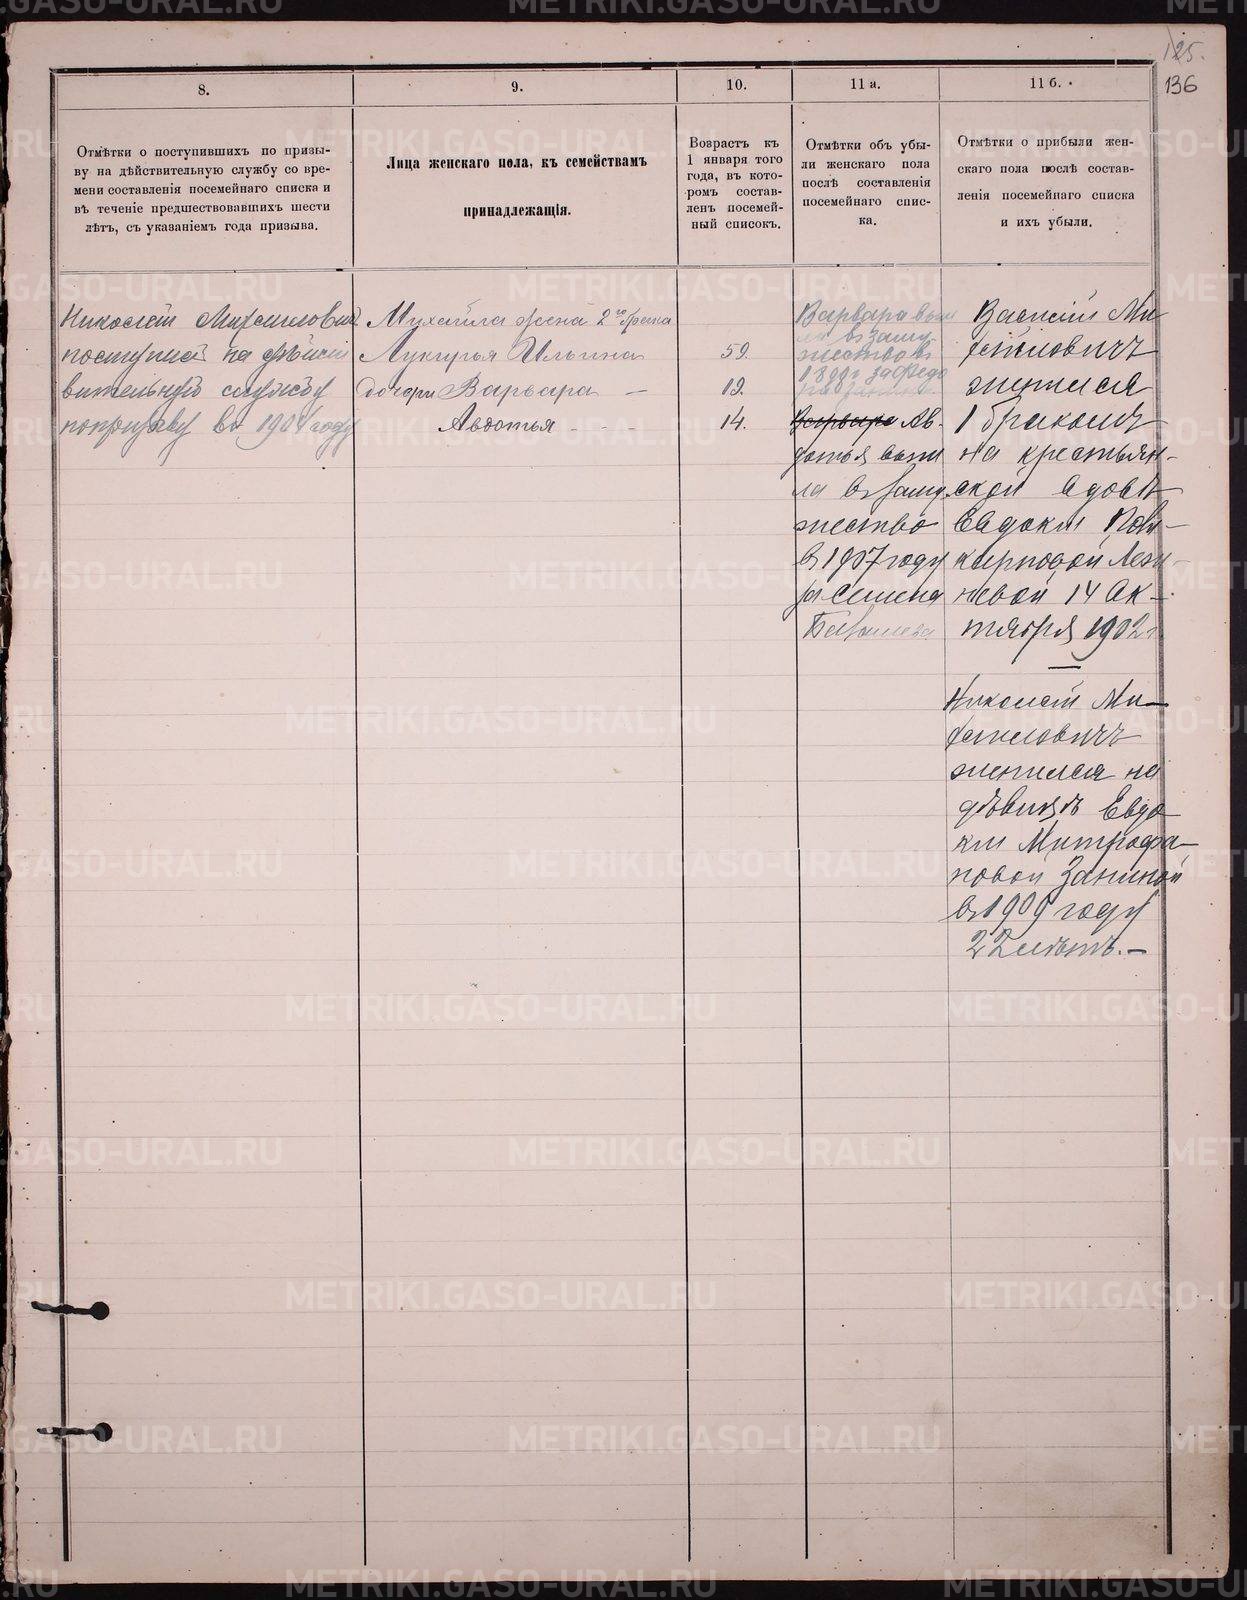 125.
136
8.
9.
10.
11 а.
11 б.
Отмѣтки о поступившихъ по призы-
ву на дѣйствительную службу со вре-
мени составленія посемейнаго списка и
въ теченіе предшествовавшихъ шести
лѣтъ, съ указаніемъ года призыва.
Лица женскаго пола, къ семействамъ
принадлежащія.
Возрастъ къ
1 января того
года, въ кото-
ромъ состав-
ленъ посемей-
ный списокъ.
Отмѣтки объ убы-
ли женскаго пола
послѣ составленія
посемейнаго спис-
ка.
Отмѣтки о прибыли жен-
скаго пола послѣ состав-
ленія посемейнаго списка
и ихъ убыли.
Николай Михаиловичъ
поступилъ на дѣйст
вительную службу
попризыву въ 1904 году
Михаила жена 2го брака
Лукирья Ильина 59.
дочери Варвара 19.
Авдотья 14.
Варвара выш
ла взаму
жество въ
за Ѳедо
Варвара Ав-
дотья выш
ла взаму
жество
въ 1907 году
за Семена
Василій Ми
хаиловичъ
женился
1 бракомъ
на крестьян-
ской вдовѣ
Евдокіи
14 Ок-
тября 1902г.
Николай Ми-
хаиловичъ
женился на
дѣвицѣ Евдо
кіи Митрофа-
новой Заниной
въ 1909 году
22 лѣтъ.
METRIKI.GASO-URAL.RU